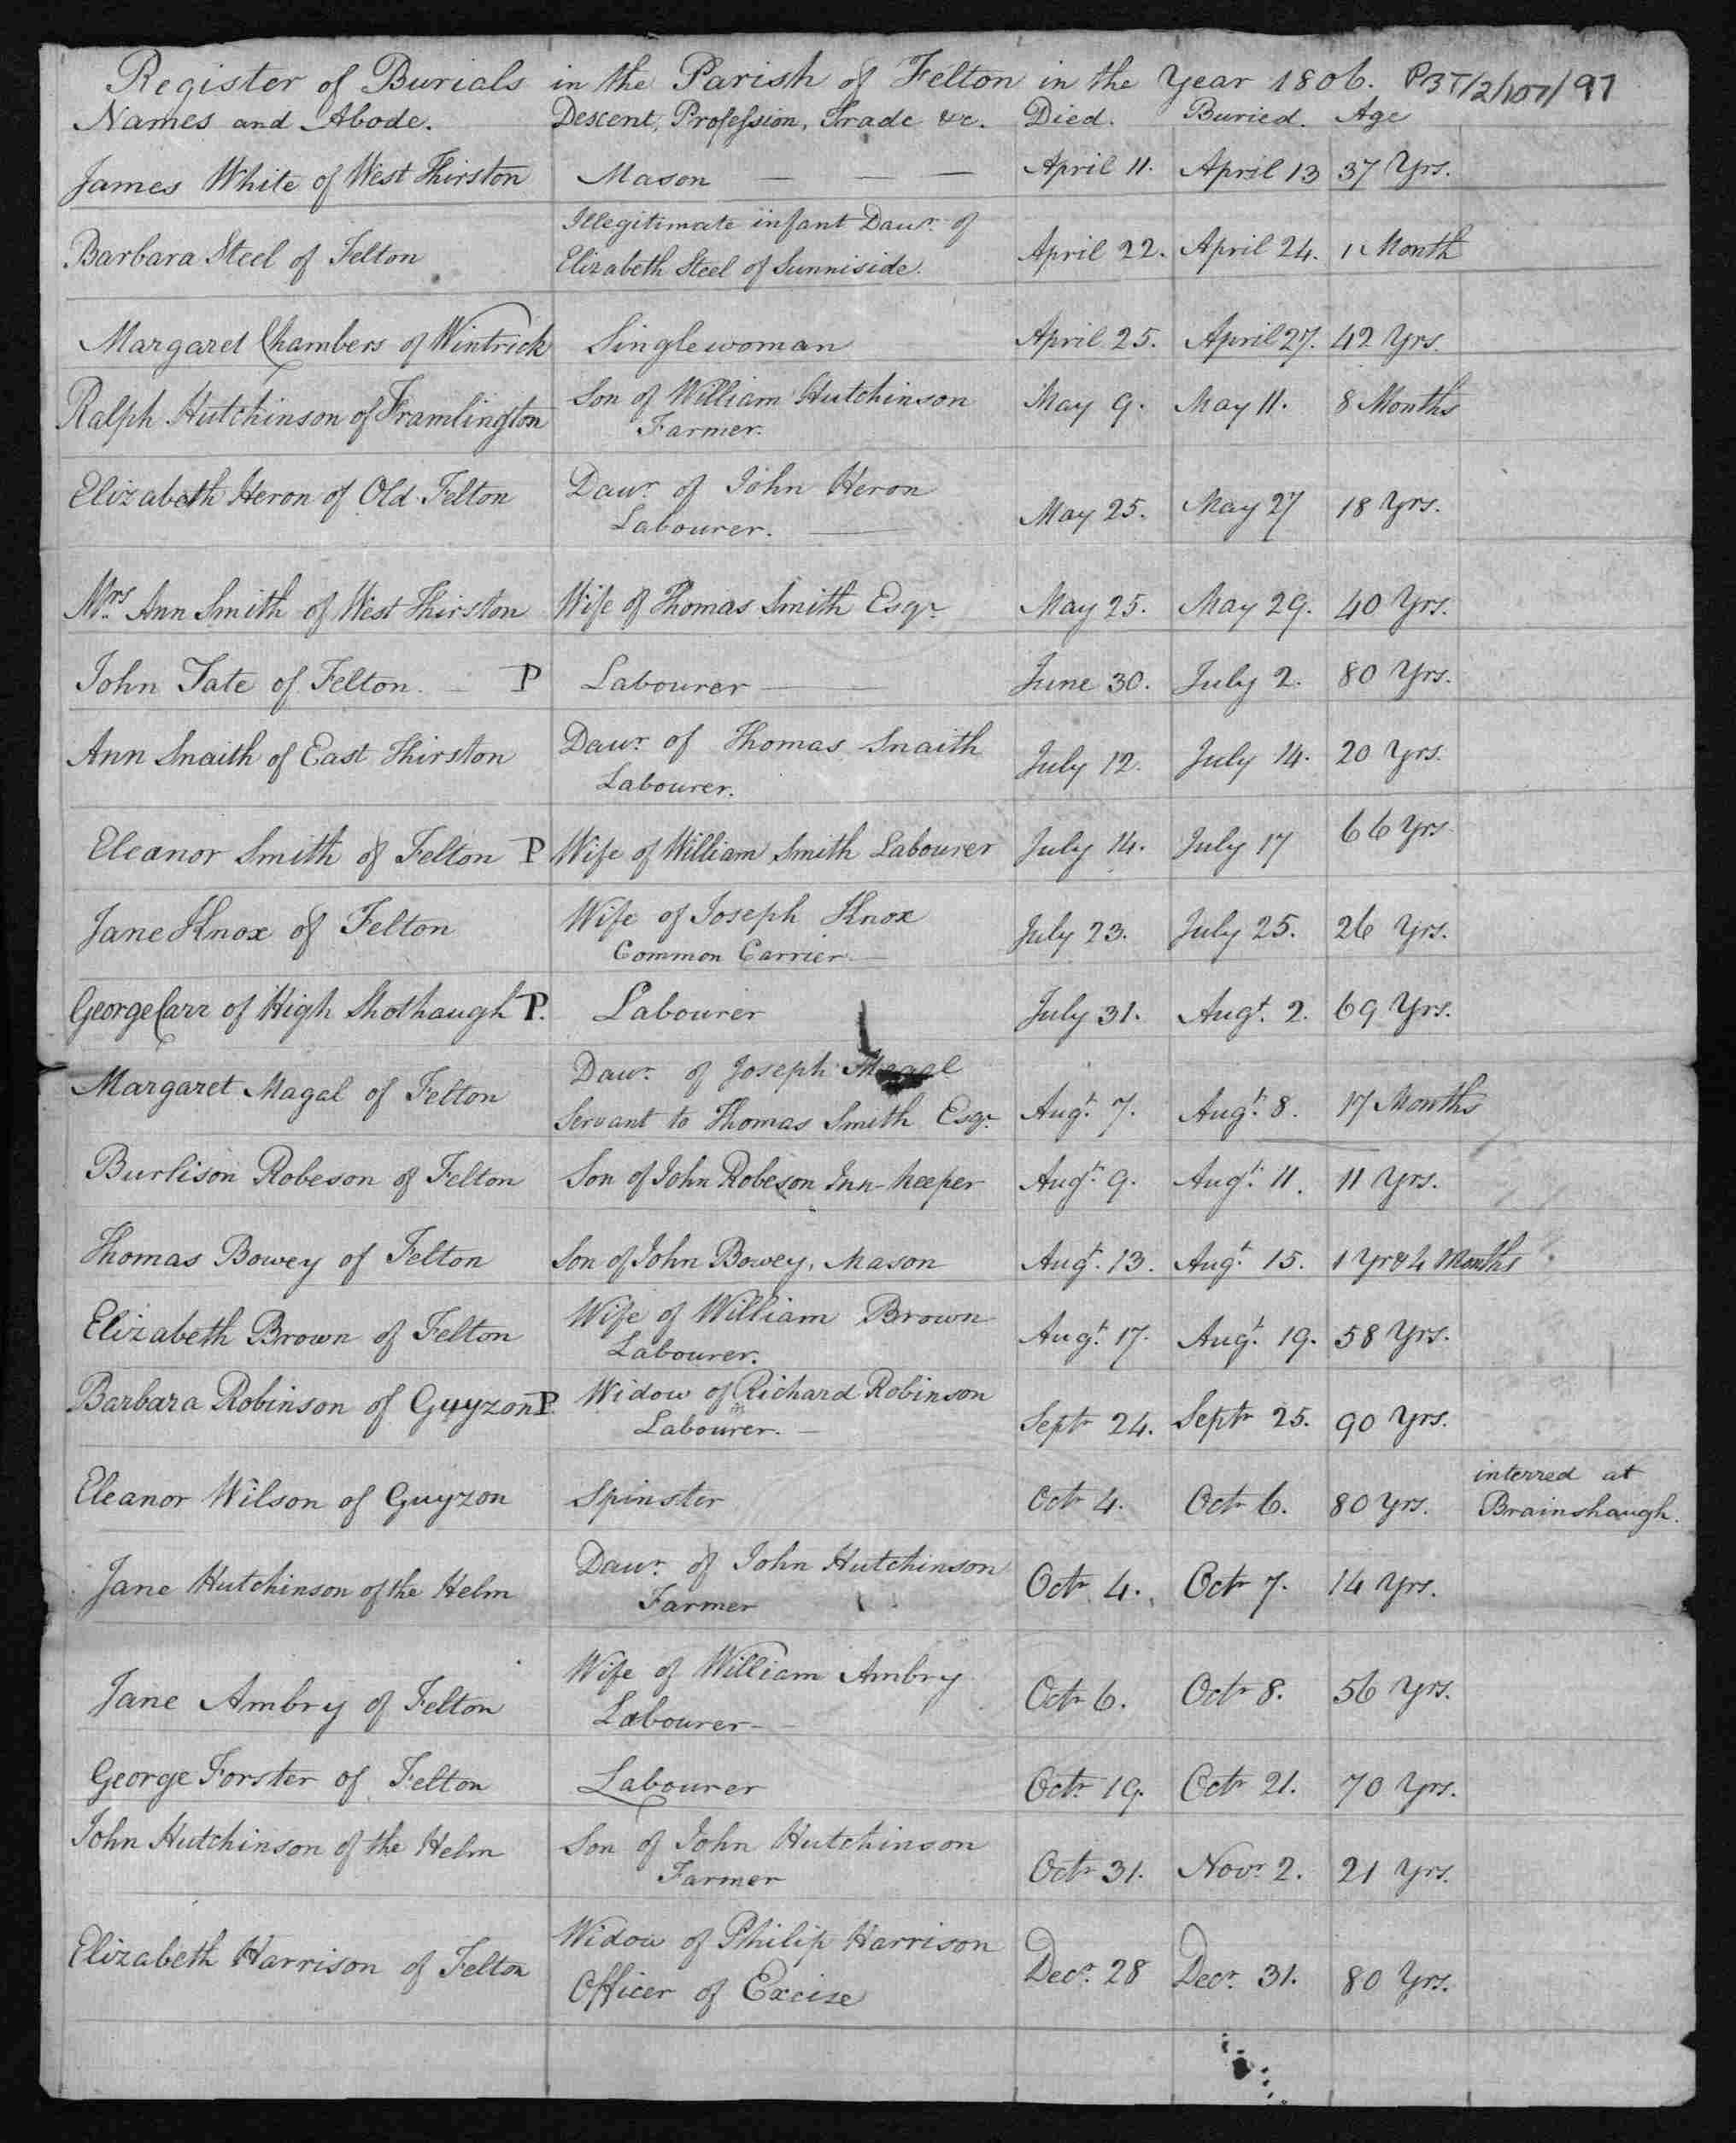 Register of Burials in the Parish of Felton in the Year 1806. PBT/2/107/97
Names and Abode. Descent, Profession, Trade &c. Died. Buried. Age
James White of West Thirston Mason — — — April 11. April 13 37 Yrs.
Illegitimate infant Dau.r of
Barbara Steel of Felton Elizabeth Steel of Sunniside. April 22. April 24. 1 Month
Margaret Chambers of Wintrick Singlewoman April 25. April 27. 42 Yrs.
Ralph Hutchinson of Framlington Son of William Hutchinson May 9. May 11. 8 Months
Farmer.
Elizabeth Heron of Old Felton Dau.r of John Heron May 25. May 27 18 Yrs.
Labourer. —
Mrs. Ann Smith of West Thirston Wife of Thomas Smith Esqr. May 25. May 29. 40 Yrs.
John Tate of Felton. — P Labourer — — June 30. July 2. 80 Yrs.
Ann Snaith of East Thirston Dau.r of Thomas Snaith July 12. July 14. 20 Yrs.
Labourer.
Eleanor Smith of Felton P Wife of William Smith Labourer July 14. July 17 66 Yrs
Jane Knox of Felton Wife of Joseph Knox July 23. July 25. 26 Yrs.
Common Carrier —
George Carr of High Shothaugh P. Labourer July 31. Augt. 2. 69 Yrs.
Margaret Magal of Felton Dau.r of Joseph Magal
Servant to Thomas Smith Esqr. Augt. 7. Augt. 8. 17 Months
Burlison Robeson of Felton Son of John Robeson Inn-keeper Augt. 9. Augt. 11. 11 Yrs.
Thomas Bowey of Felton Son of John Bowey, Mason Augt. 13. Augt. 15. 1 Yr & 4 Months
Elizabeth Brown of Felton Wife of William Brown Augt. 17. Augt. 19. 58 Yrs.
Labourer.
Barbara Robinson of Guyzon P. Widow of Richard Robinson Septr 24. Septr 25. 90 Yrs.
Labourer. —
Eleanor Wilson of Guyzon Spinster Octr 4. Octr 6. 80 Yrs. interred at
Brainshaugh.
Jane Hutchinson of the Helm Dau.r of John Hutchinson Octr 4. Octr 7. 14 Yrs.
Farmer
Jane Ambry of Felton Wife of William Ambry Octr 6. Octr 8. 56 Yrs.
Labourer —
George Forster of Felton Labourer Octr 19. Octr 21. 70 Yrs.
John Hutchinson of the Helm Son of John Hutchinson Octr 31. Novr. 2. 21 Yrs.
Farmer
Elizabeth Harrison of Felton Widow of Philip Harrison Decr. 28 Decr. 31. 80 Yrs.
Officer of Excise